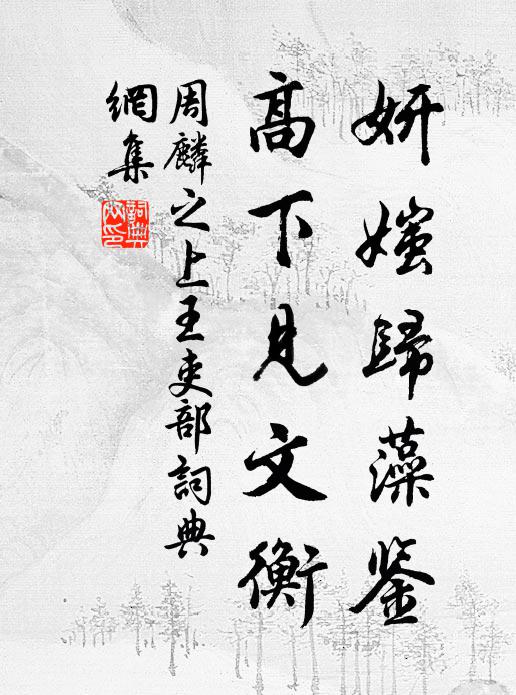 妍媸歸藻鉴
高下見文衡
周麟之上王吏部詞典
網集